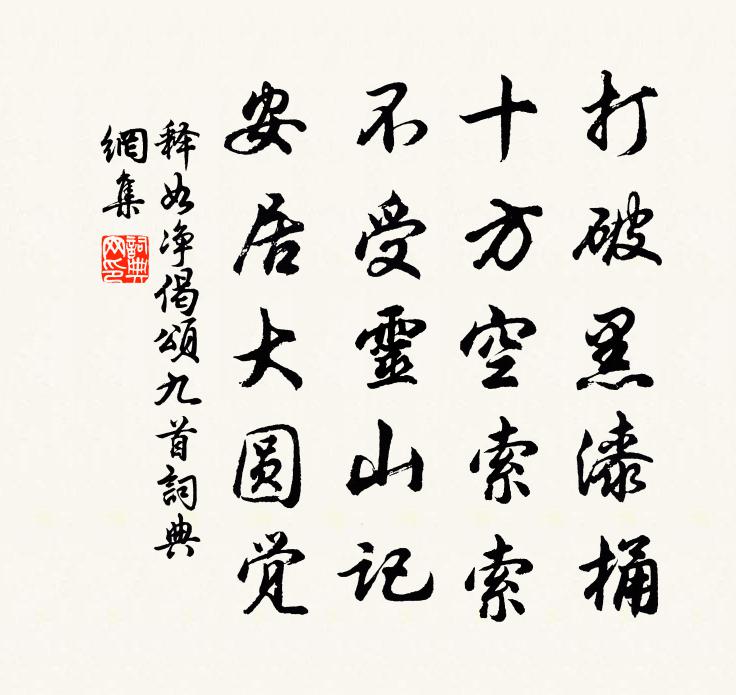 打破黑漆桶
十方空索索
不受靈山记
安居大圆觉
释如净偈頌九首詞典
網集
詞典
网印